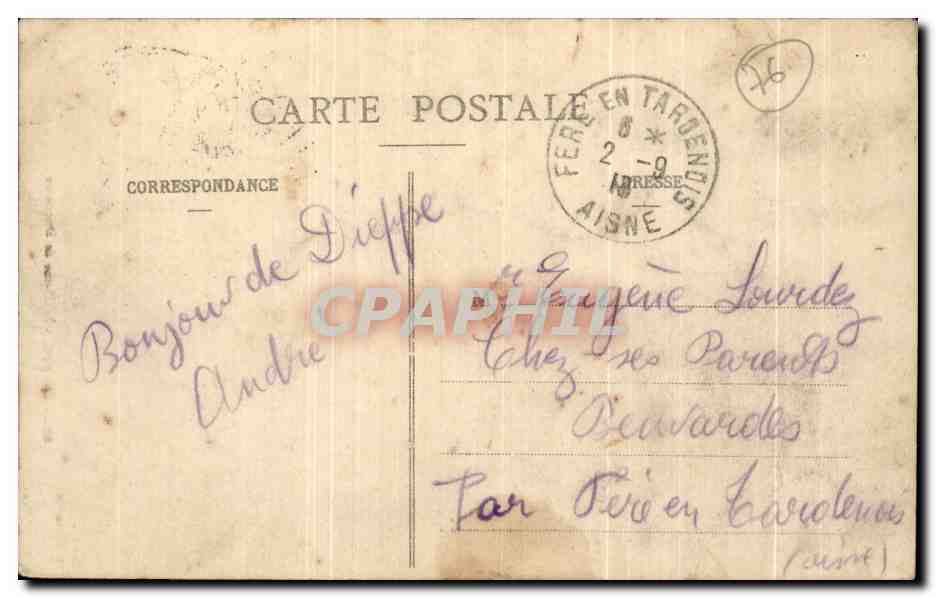 76
CARTE POSTALE
FERE EN TARDENOIS
6 *
2 -9
AISNE
CORRESPONDANCE
ADRESSE
Bonjour de Dieppe
André
Mr Eugène Lourdez
Chez ses Parents
Beuvardes
Par Fère en Tardenois
(aisne)
CPAPHIL